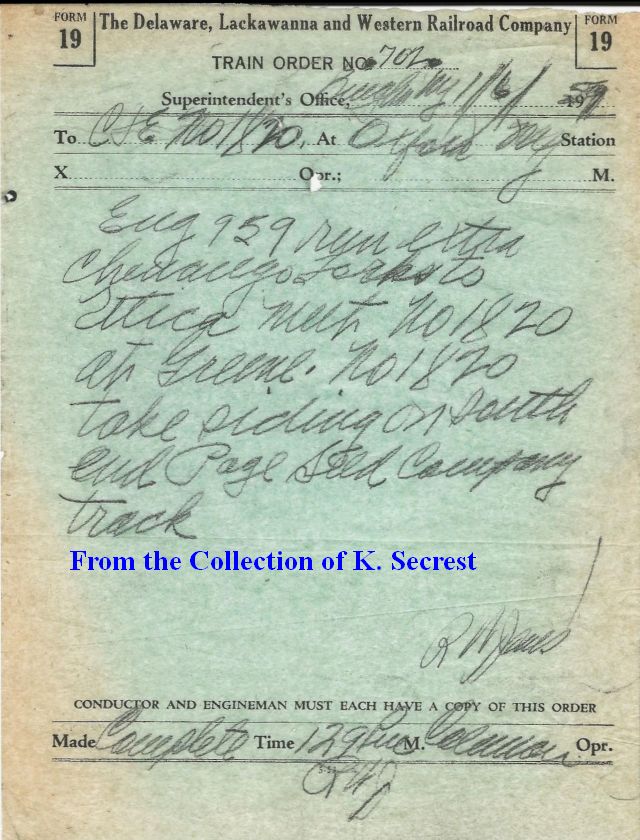 FORM 19
The Delaware, Lackawanna and Western Railroad Company
FORM 19
TRAIN ORDER NO. 702
Superintendent's Office, 1/6/ 1959
To C&E No 1820, At Oxford NY Station
X Opr.; M.
Eng 959 run extra
Chenango Forks to
Utica meet No 1820
at Greene. No 1820
take siding on South
end Page Seed Company
track
From the Collection of K. Secrest
R W Jones
CONDUCTOR AND ENGINEMAN MUST EACH HAVE A COPY OF THIS ORDER
Made Complete Time 129 Pm M. Opr.
RWJ